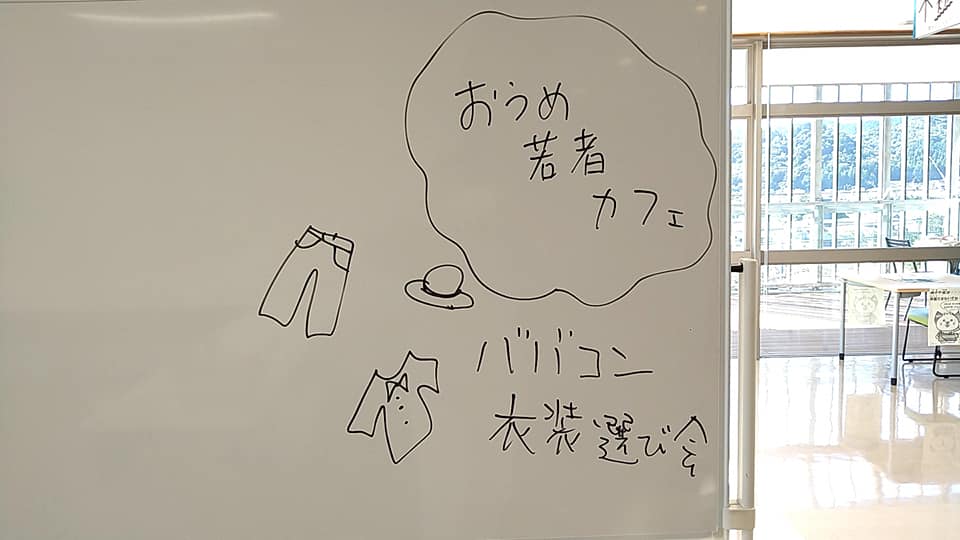 おうめ
若者
カフェ
ババコン
衣装選び会